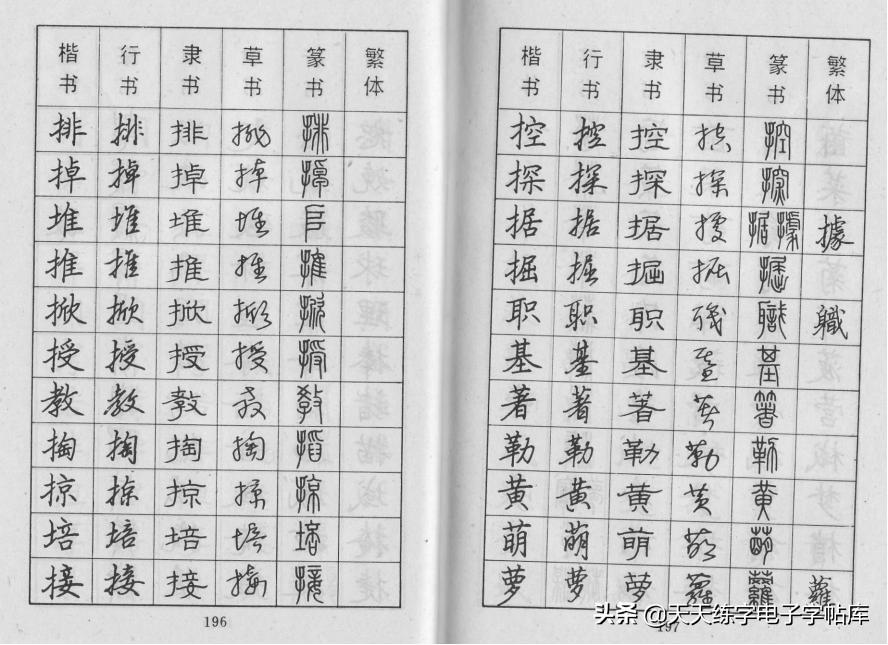 楷书 行书 隶书 草书 篆书 繁体
排 排 排 排 排
掉 掉 掉 掉 掉
堆 堆 堆 堆
推 推 推 推 推
掀 掀 掀 掀 掀
授 授 授 授 授
教 教 教 教 教
掏 掏 掏 掏 掏
掠 掠 掠 掠 掠
培 培 培 培 培
接 接 接 接 接
196
楷书 行书 隶书 草书 篆书 繁体
控 控 控 控 控
探 探 探 探 探
据 据 据 据 据據 據
掘 掘 掘 掘 掘
职 职 职 职 職 軄
基 基 基 基 基
著 著 著 著 箸
勒 勒 勒 勒 勒
黄 黄 黄 黄 黄
萌 萌 萌 萌 萌
萝 萝 萝 蘿 蘿 蘿
197
头条 @天天练字电子字帖库